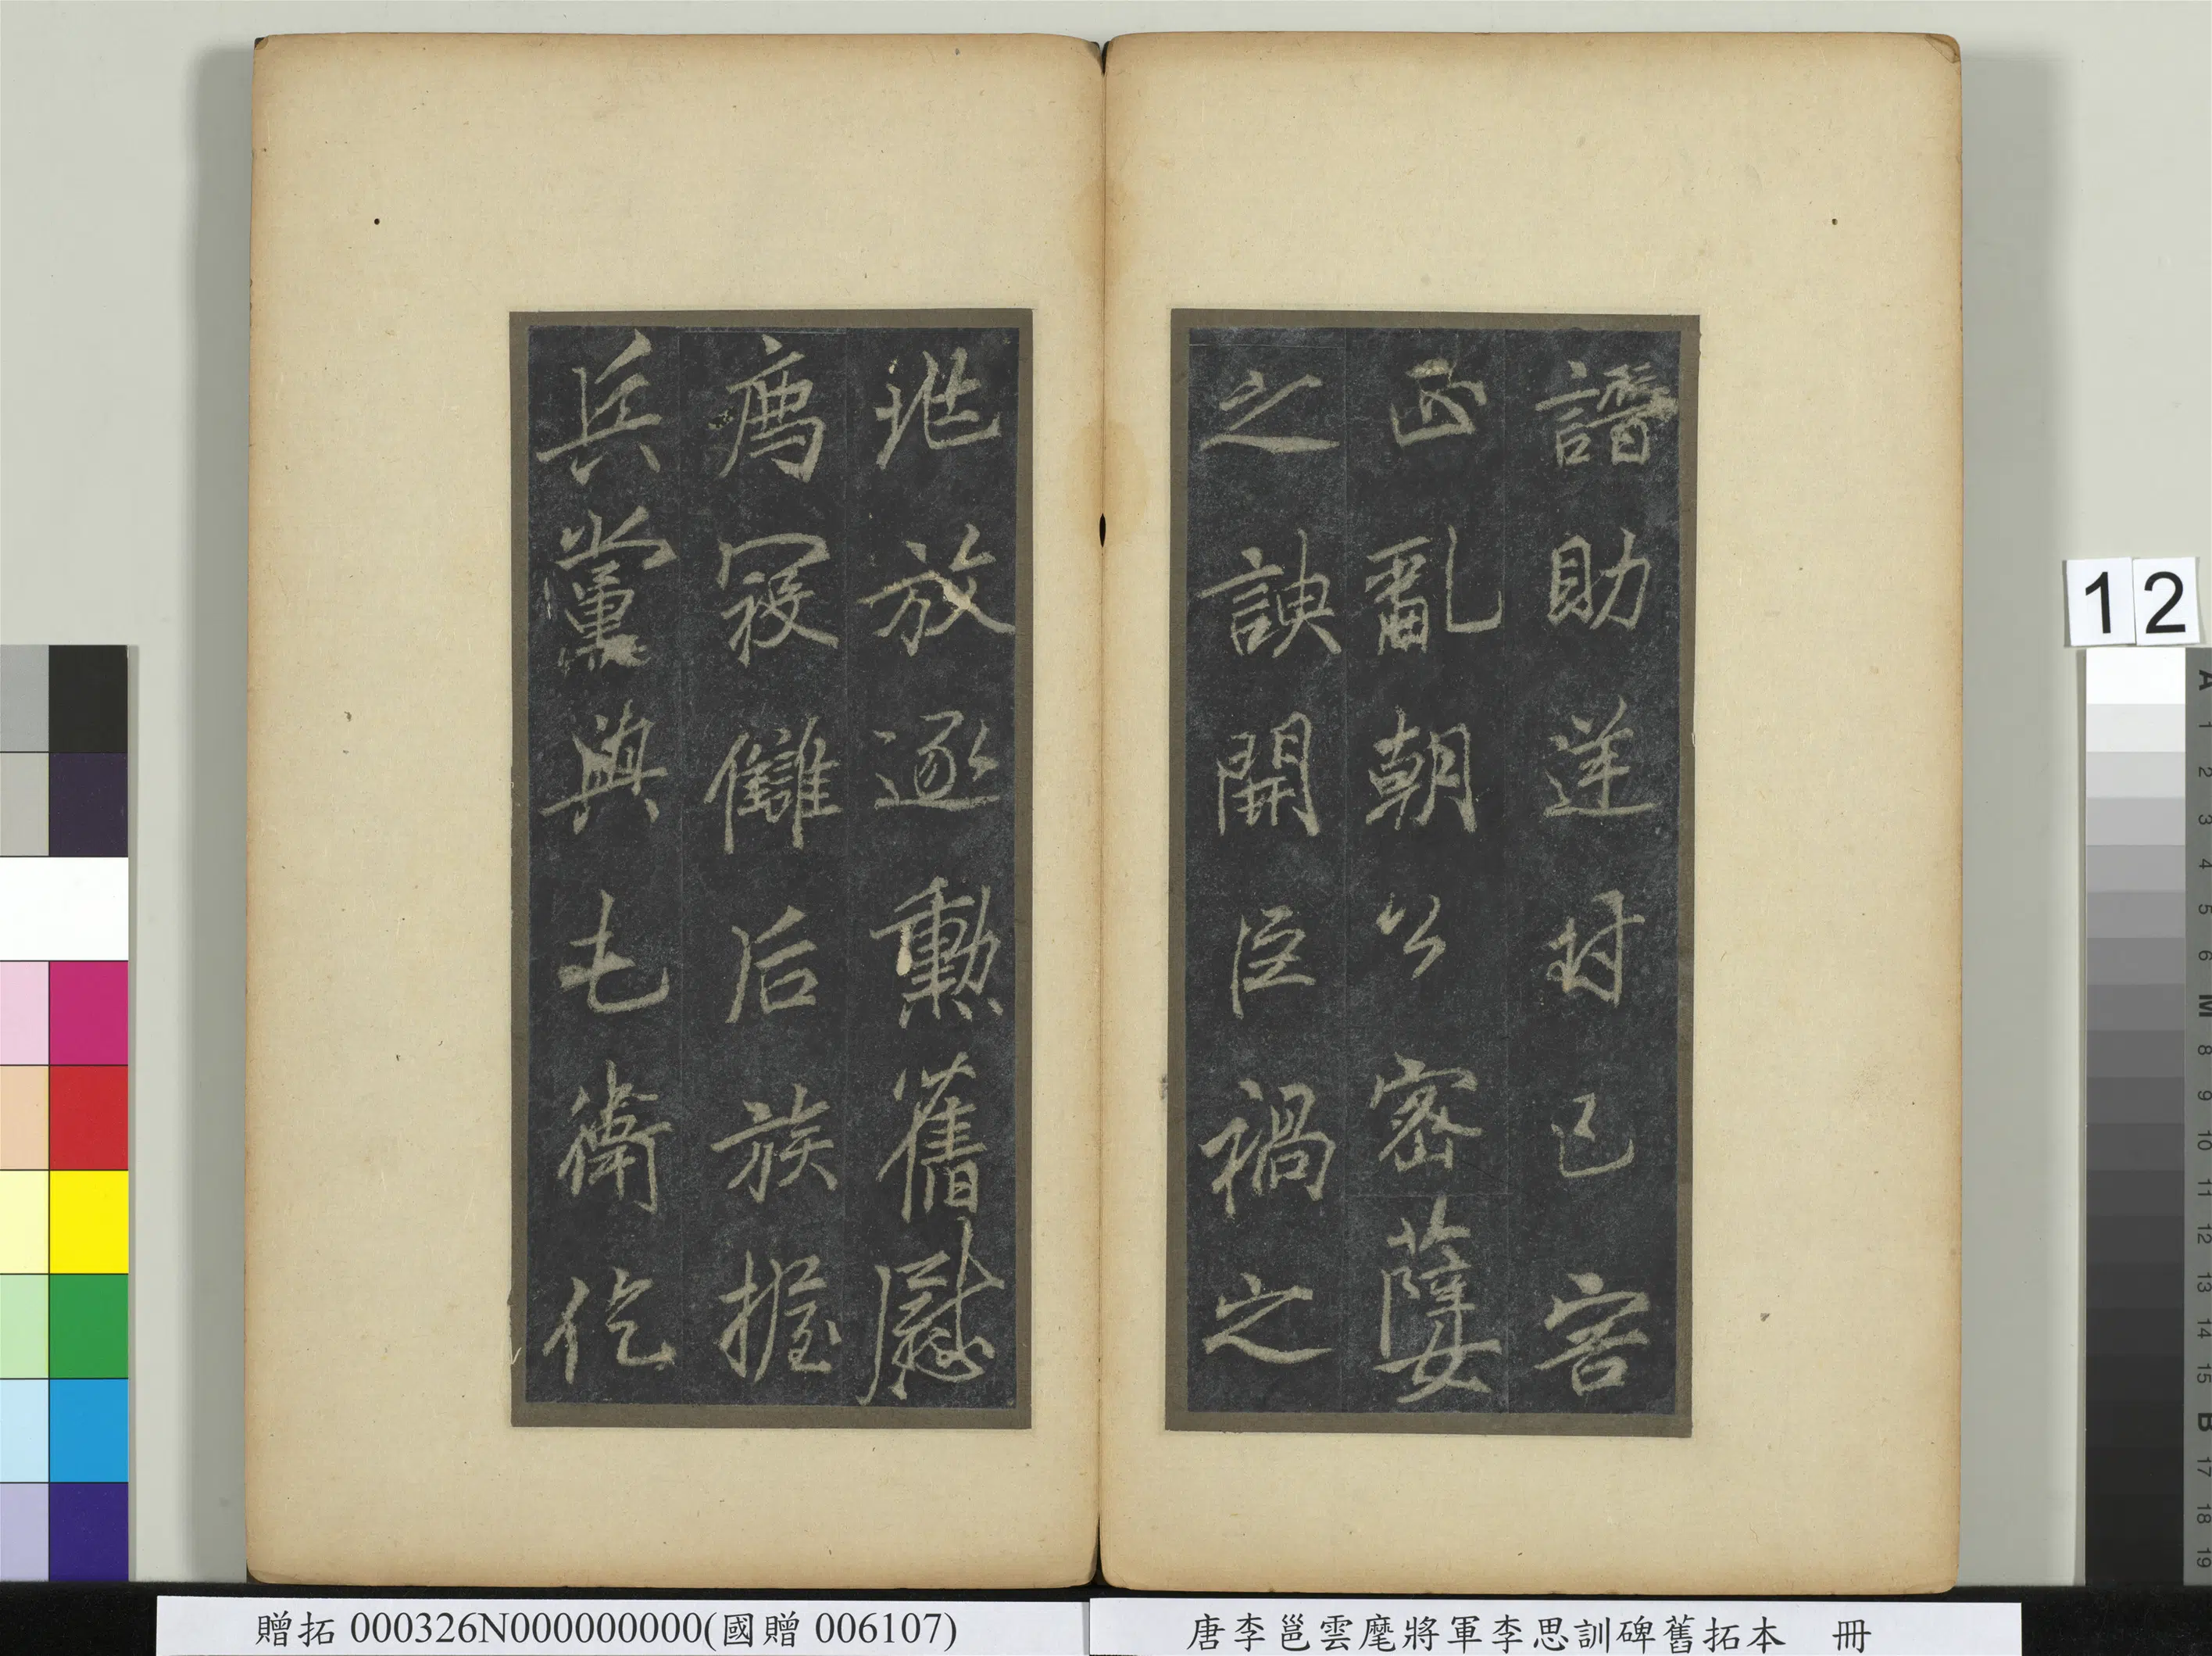 譖助逆封己害
正亂朝公密薩女
之諛開臣禍之
兆放逐勳舊慰
薦寇讎后族握
兵黨與屯衛仡
12
贈拓 000326N000000000(國贈 006107)
唐李邕雲麾將軍李思訓碑舊拓本 冊
A 1 2 3 4 5 6 M 8 9 10 11 12 13 14 15 B 17 18 19